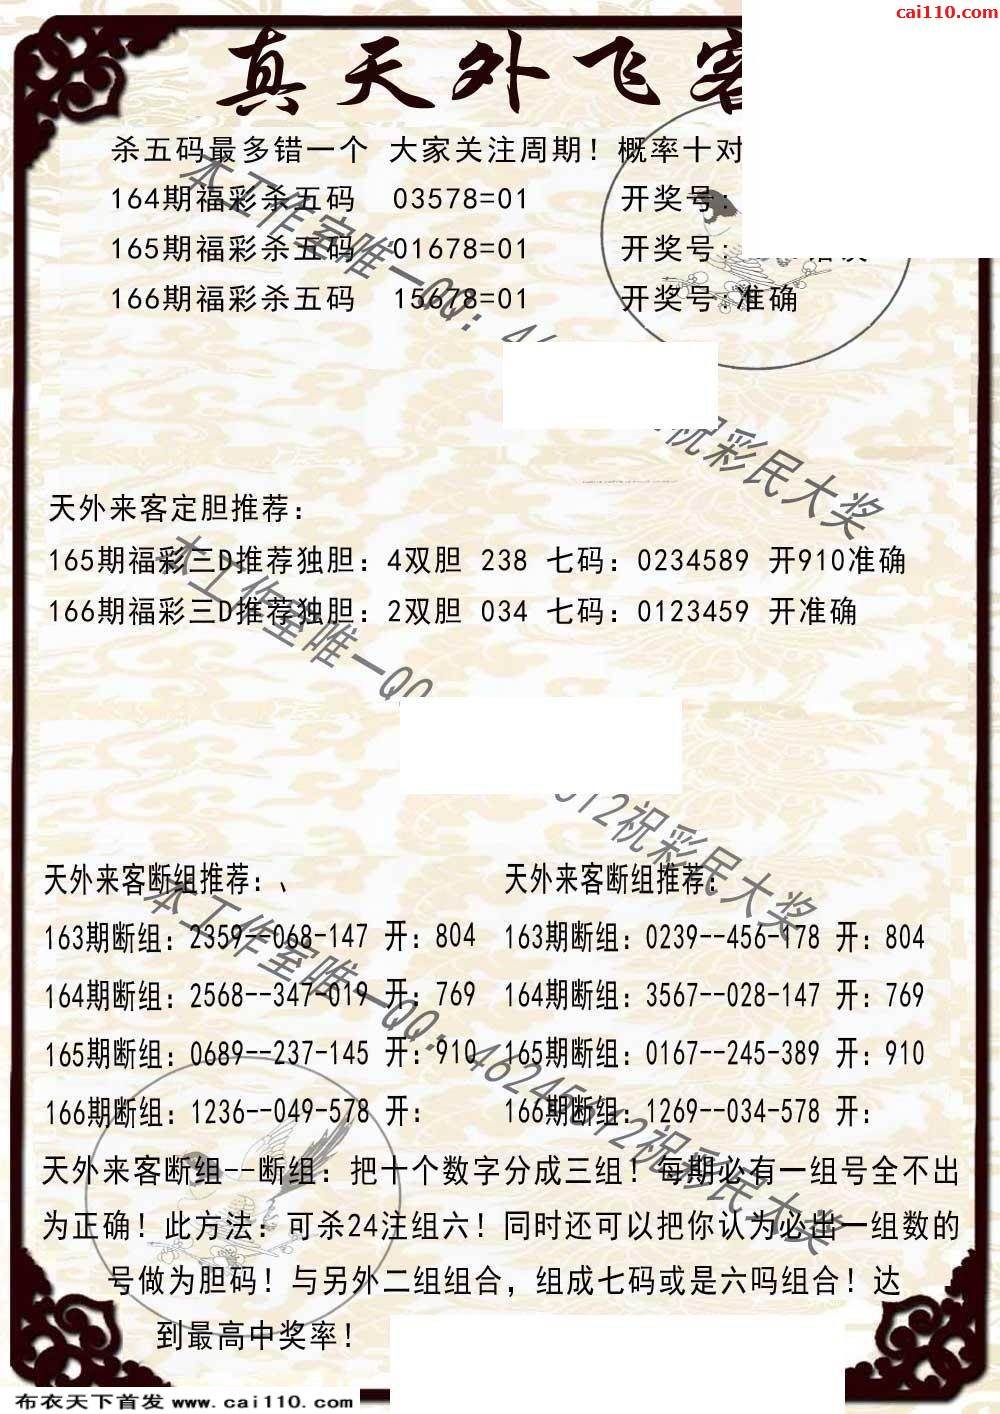 cai110.com
真天外飞客
杀五码最多错一个 大家关注周期！概率十对
164期福彩杀五码 03578=01 开奖号:
165期福彩杀五码 01678=01 开奖号:
166期福彩杀五码 15678=01 开奖号:准确
天外来客定胆推荐：
165期福彩三D推荐独胆：4双胆 238 七码：0234589 开910准确
166期福彩三D推荐独胆：2双胆 034 七码：0123459 开准确
天外来客断组推荐：、
163期断组：2359--068-147 开：804
164期断组：2568--347-019 开：769
165期断组：0689--237-145 开：910
166期断组：1236--049-578 开：
天外来客断组推荐：
163期断组：0239--456-178 开：804
164期断组：3567--028-147 开：769
165期断组：0167--245-389 开：910
166期断组：1269--034-578 开：
天外来客断组--断组：把十个数字分成三组！每期必有一组号全不出
为正确！此方法：可杀24注组六！同时还可以把你认为必出一组数的
号做为胆码！与另外二组组合，组成七码或是六吗组合！达
到最高中奖率！
本工作室唯一QQ：46
祝彩民大奖
本工作室唯一QQ
612祝彩民大奖
本工作室唯一QQ：46245612祝彩民大奖
布衣天下首发 www.cai110.com